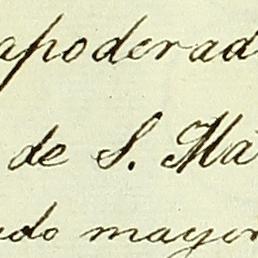 apoderad
de S. Ma
do mayor